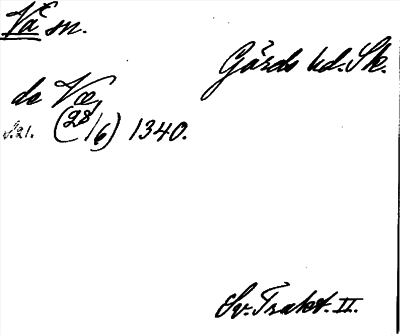 Vä sn.
Gärds hd. Sk.
de Væ
s. 21. (28/6) 1340.
Sv. Trakt. II.